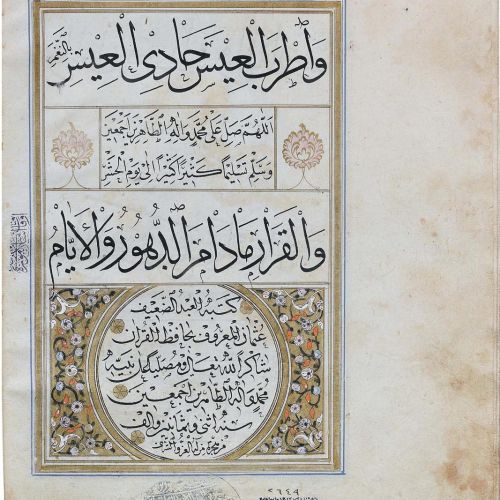 واطرب العيس حادى العيس بالنغم
اللهم صل على محمد واله الطاهرين اجمعين
وسلم تسليما كثيرا كثيرا الى يوم الحشر
والقرار مادام الدهور والايام
كتبه العبد الضعيف
عثمان المعروف بحافظ القران
شاكرا لله تعالى ومصليا على نبيه
محمد واله الطاهرين اجمعين
سنه اثنى وثمانين والف
من هجرة من له العز والشرف
٢٦٤٩